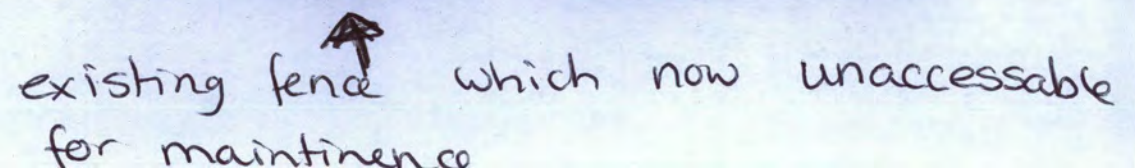 existing fence which now unaccessable
for maintinence